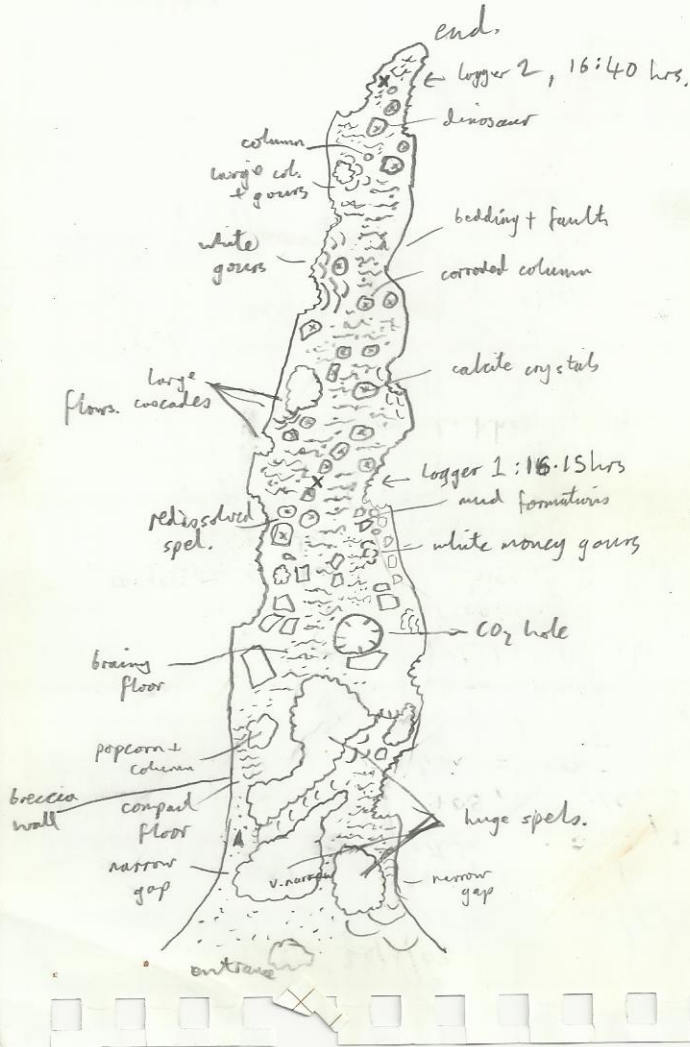 end.
← logger 2, 16:40 hrs.
dinosaur
column
large col.
+ gours
bedding + faults
white
gours
corroded column
calcite crystals
large
flows. cascades
← logger 1: 16.15hrs
mud formations
redissolved
spel.
white money gours
CO2 hole
brainy
floor
popcorn +
column
breccia
wall
compact
floor
huge spels.
narrow
gap
v. narrow
narrow
gap
entrance